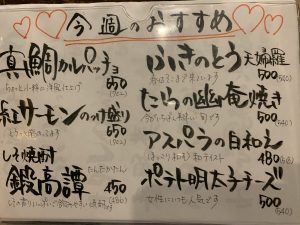 今週のおすすめ
真鯛カルパッチョ
650
紅サーモンのハケ盛り
650
しそ焼酎
たんたかたん
鍛高譚 450
ふきのとう天婦羅
500
(540)
たらの幽庵焼き
500
(540)
アスパラの白和え
480
ポテト明太子チーズ
500
(540)
女性にいつも人気です